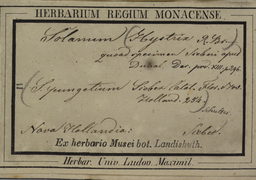 HERBARIUM REGIUM MONACENSE.
Solanum (Hystrix R. Br.)
quoad specimen Sieberi apud
Dunal. DC. pr. XIII. p.
= (S. pungetium Sieber
Holland. 284)
Nova Hollandia: Sieber.
Ex herbario Musei bot. Landishuth.
Herbar. Univ. Ludov. Maximil.